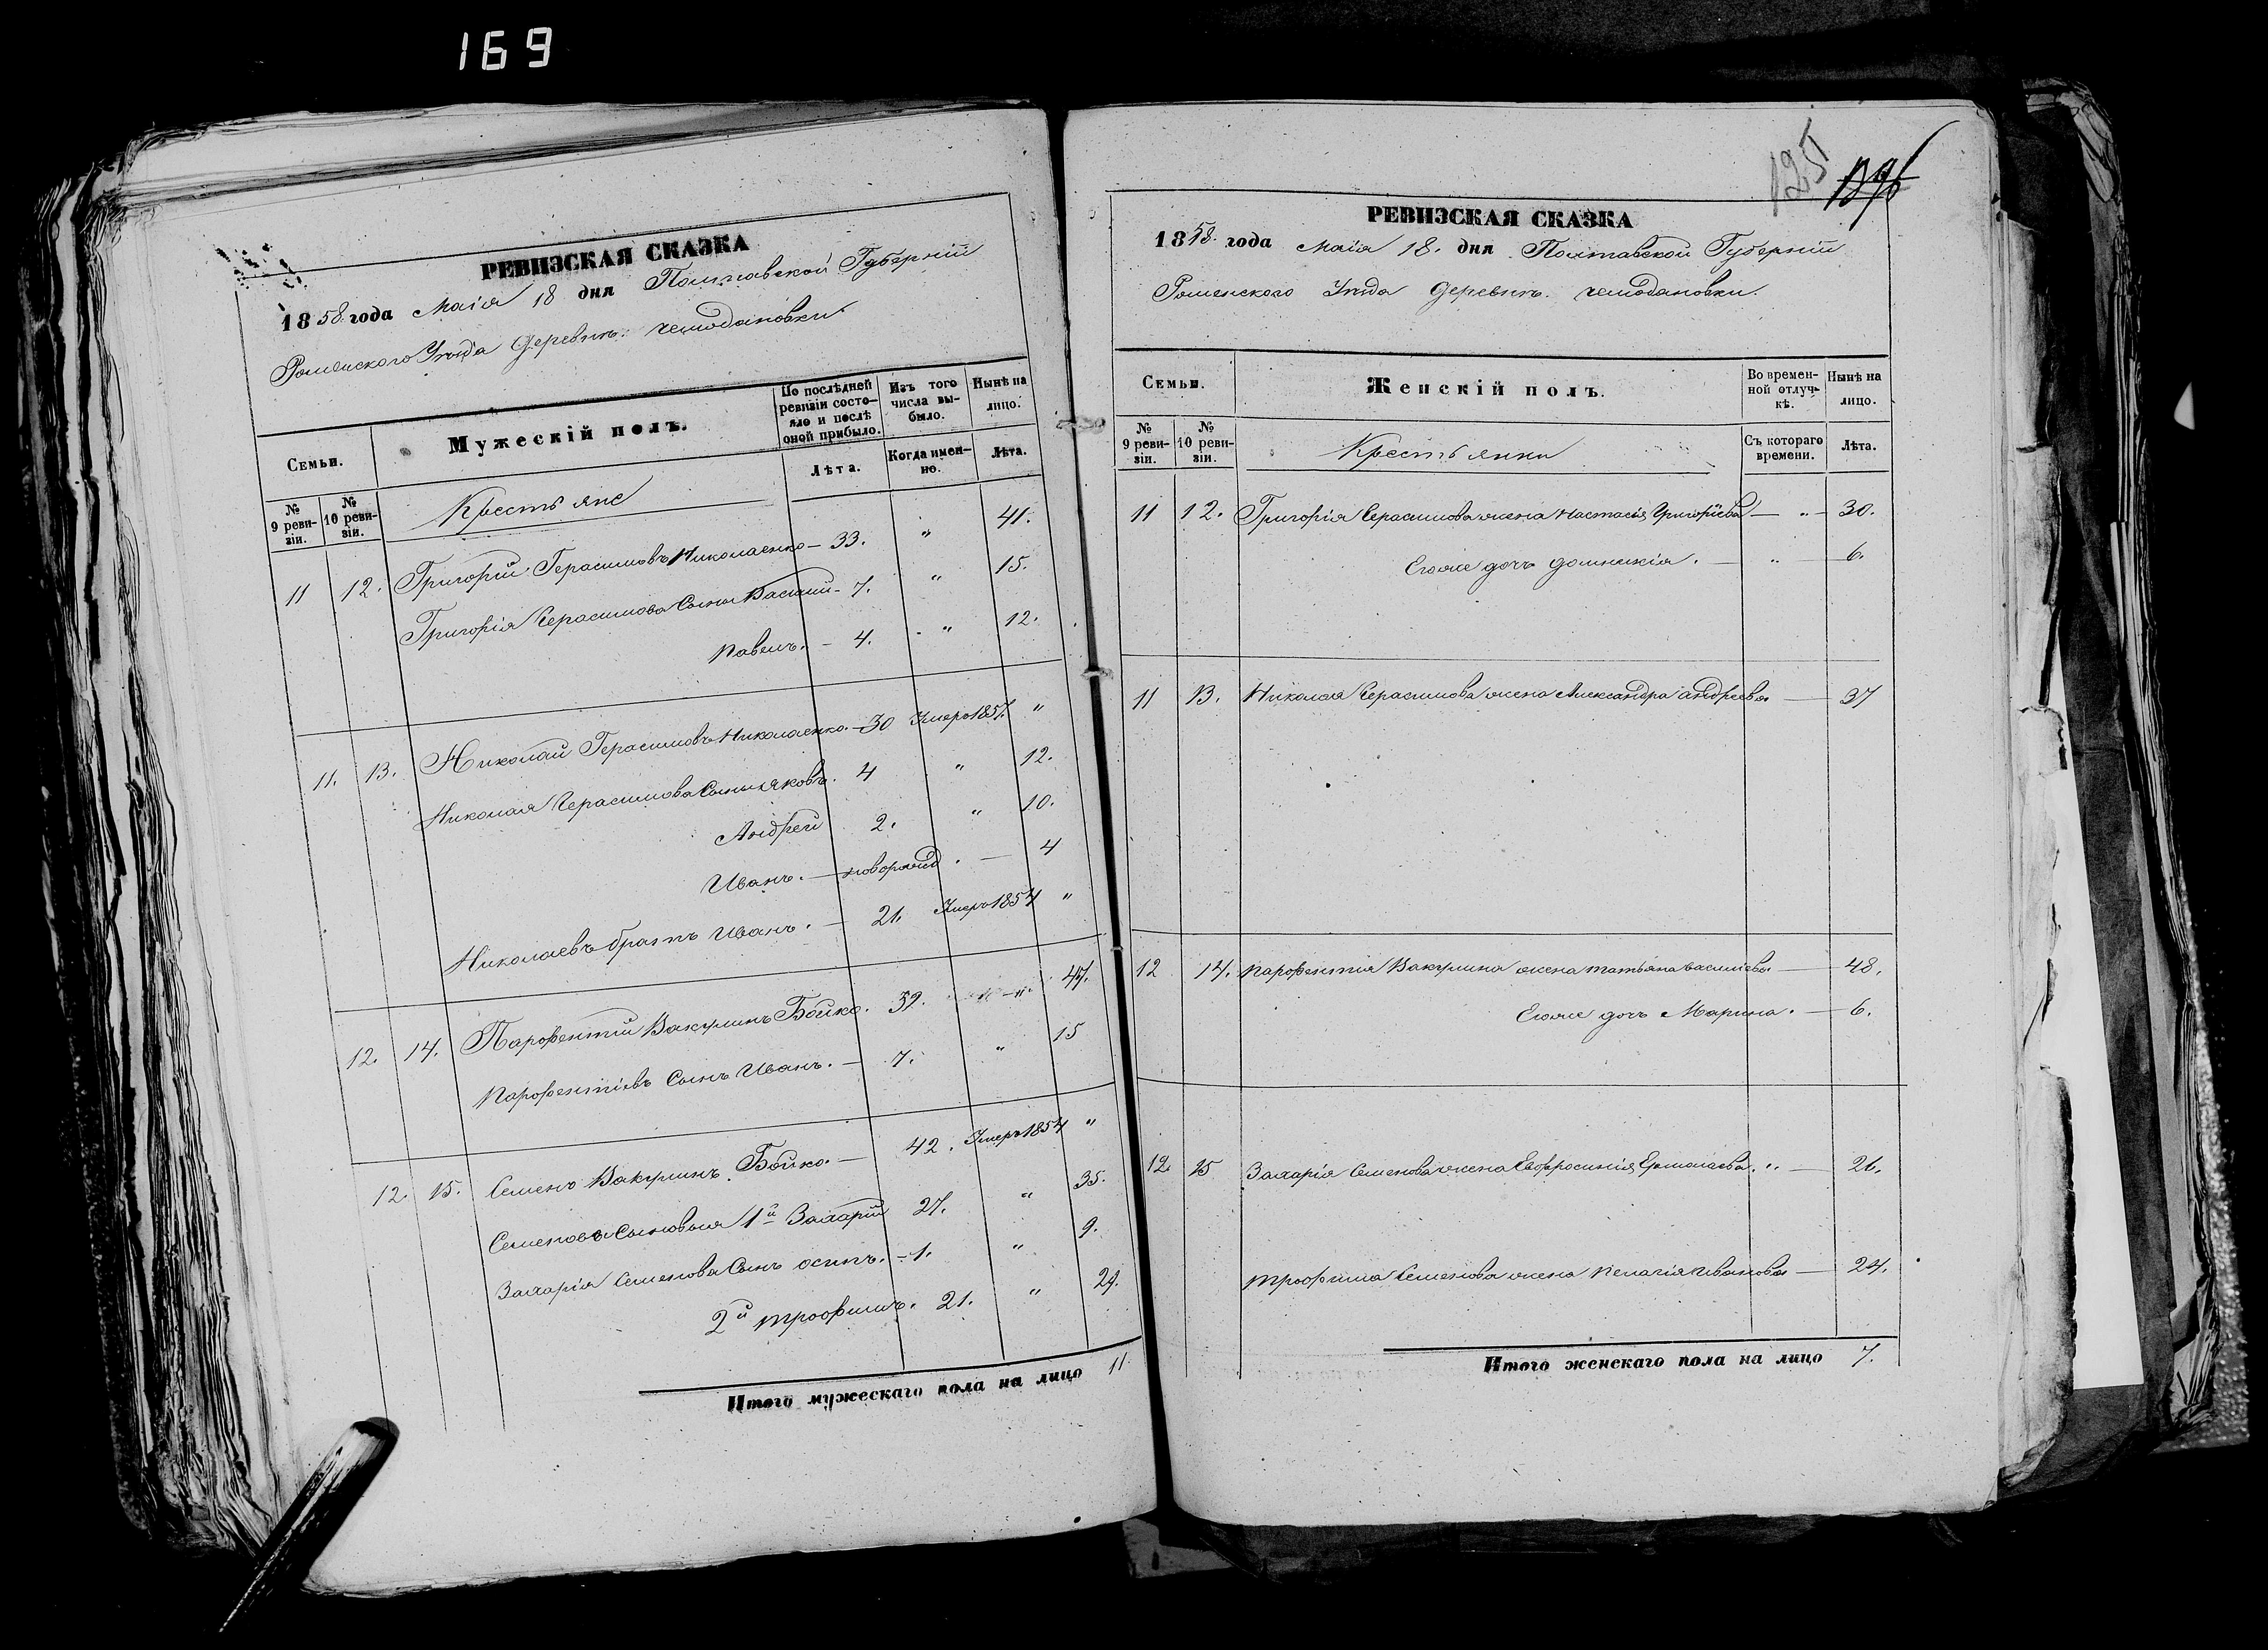 169
РЕВИЗСКАЯ СКАЗКА
1858 года Маія 18 дня Полтавской Губерніи
Роменского Уѣзда Деревнѣ: Чемодановки
Семьи.
Мужескій полъ.
По послѣдней ревизіи состояло и послѣ оной прибыло.
Изъ того числа выбыло.
Нынѣ на лицо.
№ 9 ревизіи.
№ 10 ревизіи.
Крестьяне
Лѣта.
Когда именно.
Лѣта.
11 12. Григорій Герасимовъ Николаенко — 33. " 41.
Григорія Герасимова Сыны Василій — 7. " 15.
Павелъ. — 4. " 12.
11. 13. Николай Герасимовъ Николаенко. — 30 Умеръ 1857. "
Николая Герасимова Сыны Яковъ. 4 " 12.
Андрей 2. " 10.
Иванъ. — новорожд. — 4
Николаевъ братъ Иванъ. — 21. Умеръ 1854 "
12. 14. Парфентій Вакулинъ Бойко. 39. " 47.
Парфентіевъ Сынъ Иванъ. — 7. " 15
12. 15. Семенъ Вакулинъ Бойко. — 42. Умеръ 1854 "
Семеновы Сыновья 1й Захарій 27. " 35.
Захарія Семенова Сынъ Осипъ. — 1. " 9.
2й Трофимъ. 21. " 29.
Итого мужескаго пола на лицо 11.
125
РЕВИЗСКАЯ СКАЗКА
1858. года Маія 18. дня Полтавской Губерніи
Роменского Уѣзда Деревнѣ. Чемодановки.
Семьи.
Женскій полъ.
Во временной отлучкѣ.
Нынѣ на лицо.
№ 9 ревизіи.
№ 10 ревизіи.
Крестьянки
Съ котораго времени.
Лѣта.
11 12. Григорія Герасимова жена Настасія Григоріева — " — 30.
Егоже дочь Домникія. — " — 6.
11 13. Николая Герасимова жена Александра Андреева — 37
12 14. Парфентія Вакулина жена Татьяна Василіева — 48.
Егоже дочь Марина. — 6.
12. 15 Захарія Семенова жена Евфросинія Ермолаева. " — 26.
Трофима Семенова жена Пелагія Иванова — 24.
Итого женскаго пола на лицо 7.